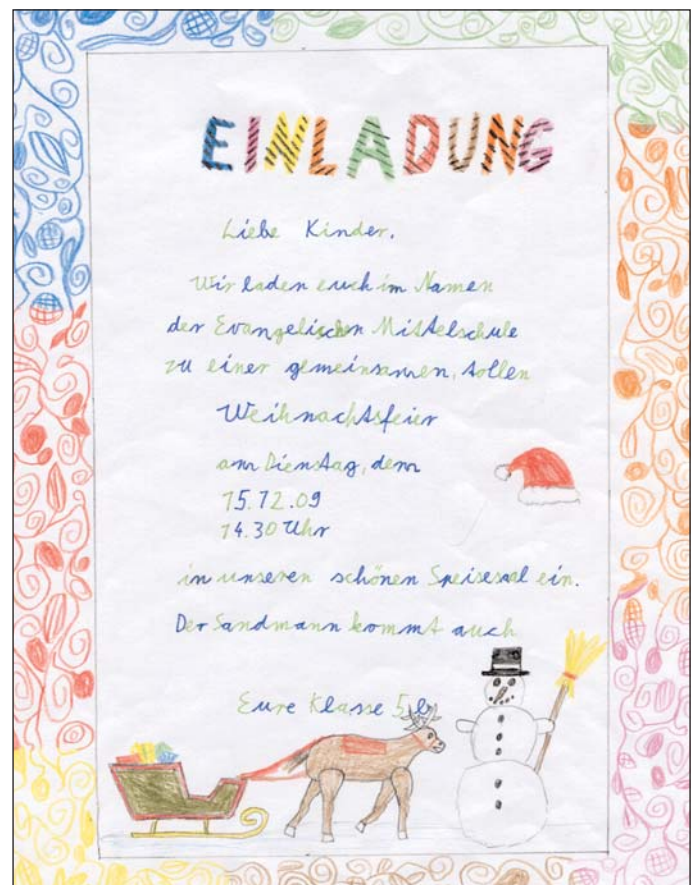 EINLADUNG
Liebe Kinder,
Wir laden euch im Namen
der Evangelischen Mittelschule
zu einer gemeinsamen, tollen
Weihnachtsfeier
am Dienstag, dem
15.12.09
14.30 Uhr
in unseren schönen Speisesaal ein.
Der Sandmann kommt auch
Eure Klasse 5b